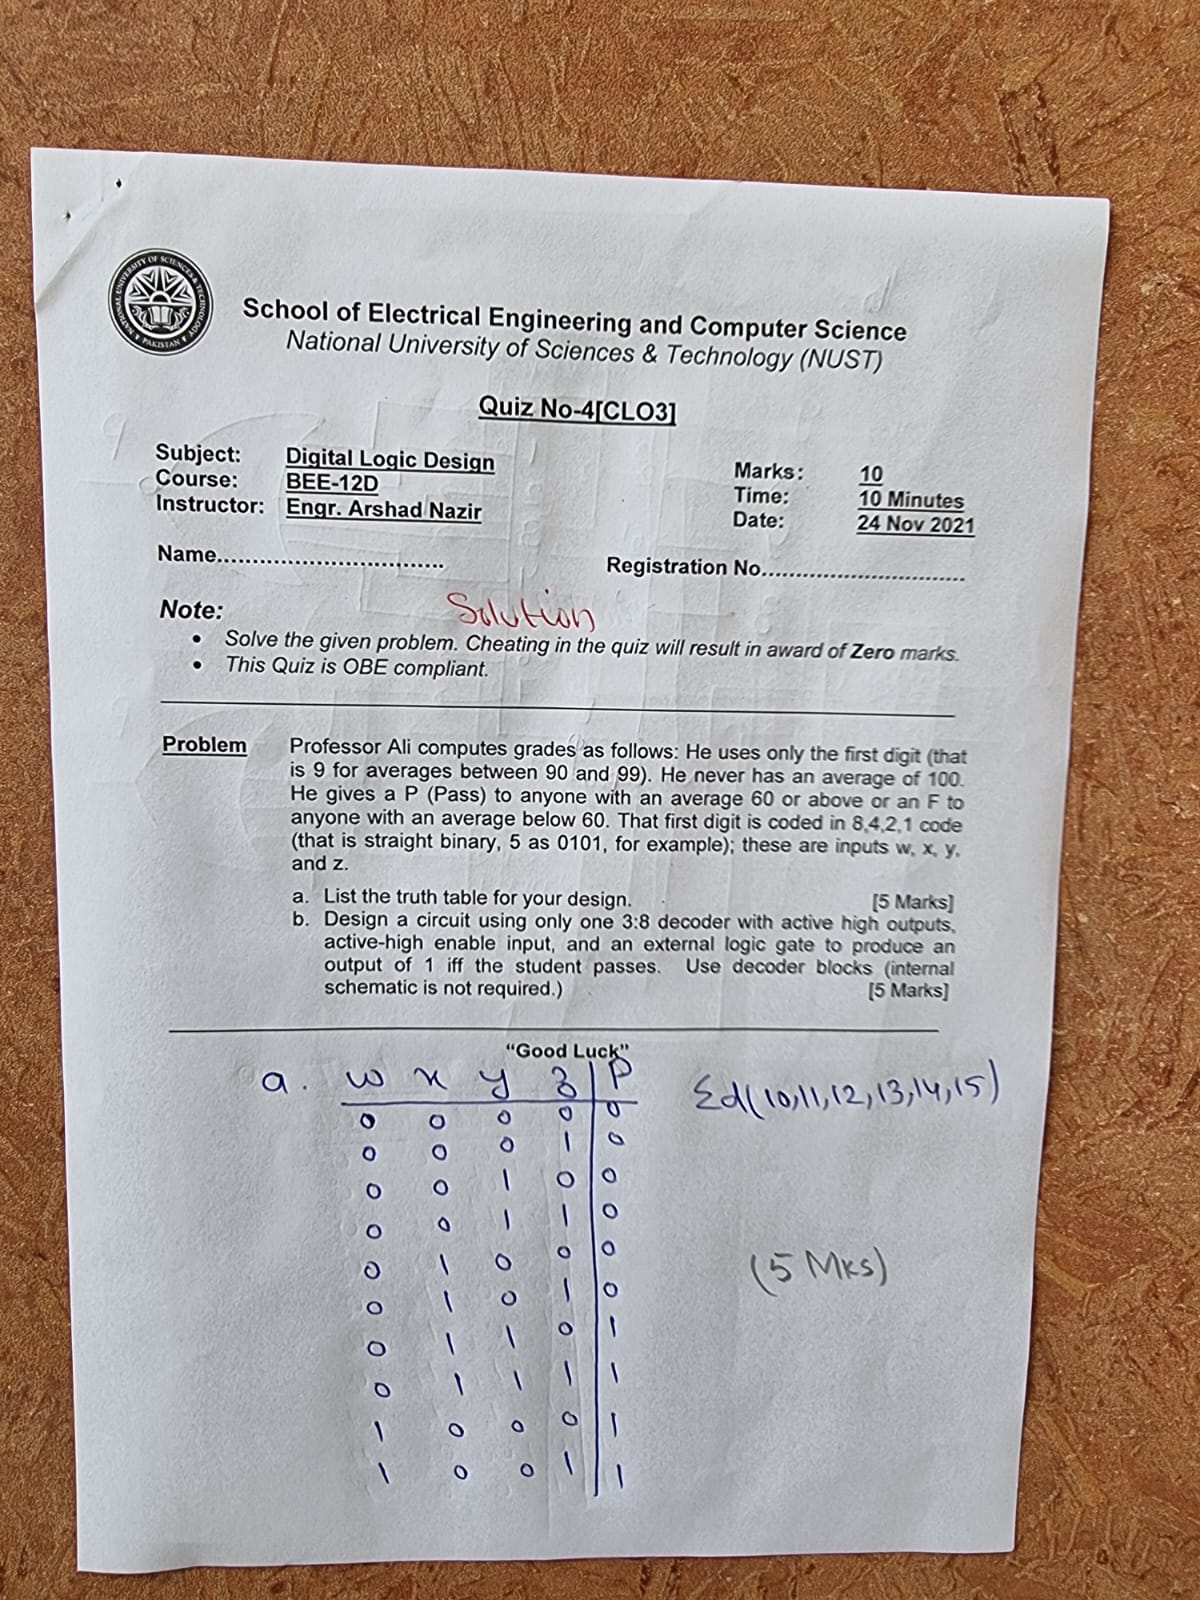 NATIONAL UNIVERSITY OF SCIENCES & TECHNOLOGY
PAKISTAN
School of Electrical Engineering and Computer Science
National University of Sciences & Technology (NUST)
Quiz No-4[CLO3]
Subject: Digital Logic Design Marks: 10
Course: BEE-12D Time: 10 Minutes
Instructor: Engr. Arshad Nazir Date: 24 Nov 2021
Name................................ Registration No................................
Note: Solution
• Solve the given problem. Cheating in the quiz will result in award of Zero marks.
• This Quiz is OBE compliant.
Problem Professor Ali computes grades as follows: He uses only the first digit (that
is 9 for averages between 90 and 99). He never has an average of 100.
He gives a P (Pass) to anyone with an average 60 or above or an F to
anyone with an average below 60. That first digit is coded in 8,4,2,1 code
(that is straight binary, 5 as 0101, for example); these are inputs w, x, y,
and z.
a. List the truth table for your design. [5 Marks]
b. Design a circuit using only one 3:8 decoder with active high outputs,
active-high enable input, and an external logic gate to produce an
output of 1 iff the student passes. Use decoder blocks (internal
schematic is not required.) [5 Marks]
“Good Luck”
a. w x y z P Σd(10,11,12,13,14,15)
0 0 0 0 0
0 0 0 1 0
0 0 1 0 0
0 0 1 1 0
0 1 0 0 0
(5 Mks)
0 1 0 1 0
0 1 1 0 1
0 1 1 1 1
1 0 0 0 1
1 0 0 1 1